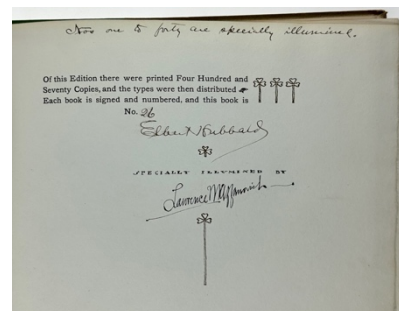 Nos one to forty are specially illumined.
Of this Edition there were printed Four Hundred and
Seventy Copies, and the types were then distributed
Each book is signed and numbered, and this book is
No. 26
Elbert Hubbard
SPECIALLY ILLUMINED BY
Lawrence Mazzanovich